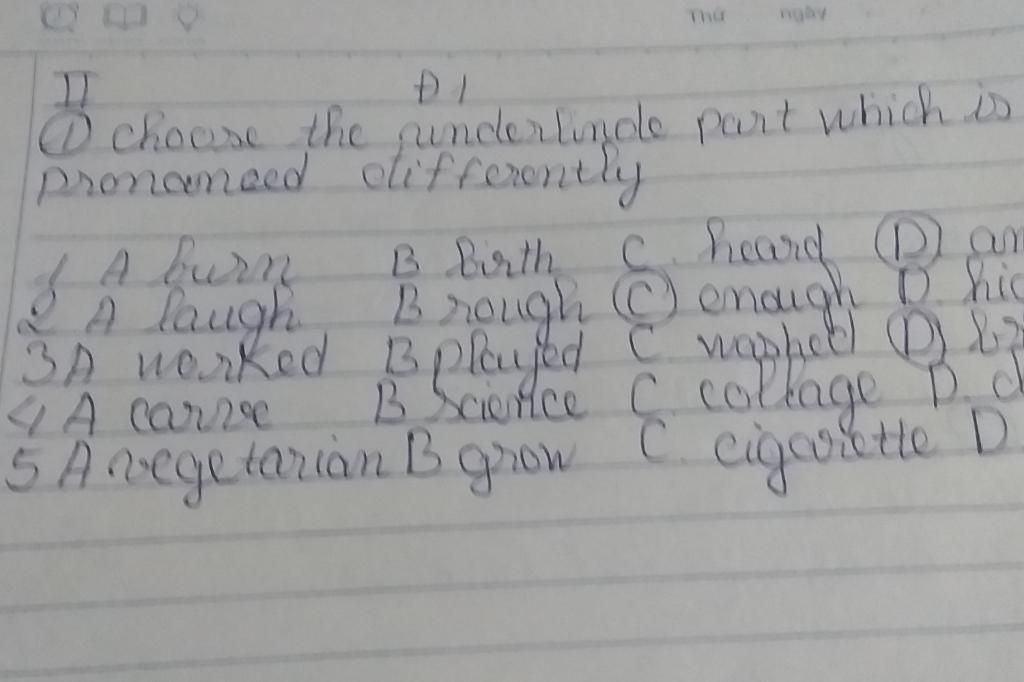 Thứ ngày
II Đ1
① choose the underlinde part which is
pronamced differently
1 A burn B Birth C. heard Ⓓ
2 A laugh B rough Ⓒ enough D.
3 A worked B played C washed Ⓓ
4 A B Science C. collage D.
5 A vegetarian B grow C. cigarette D